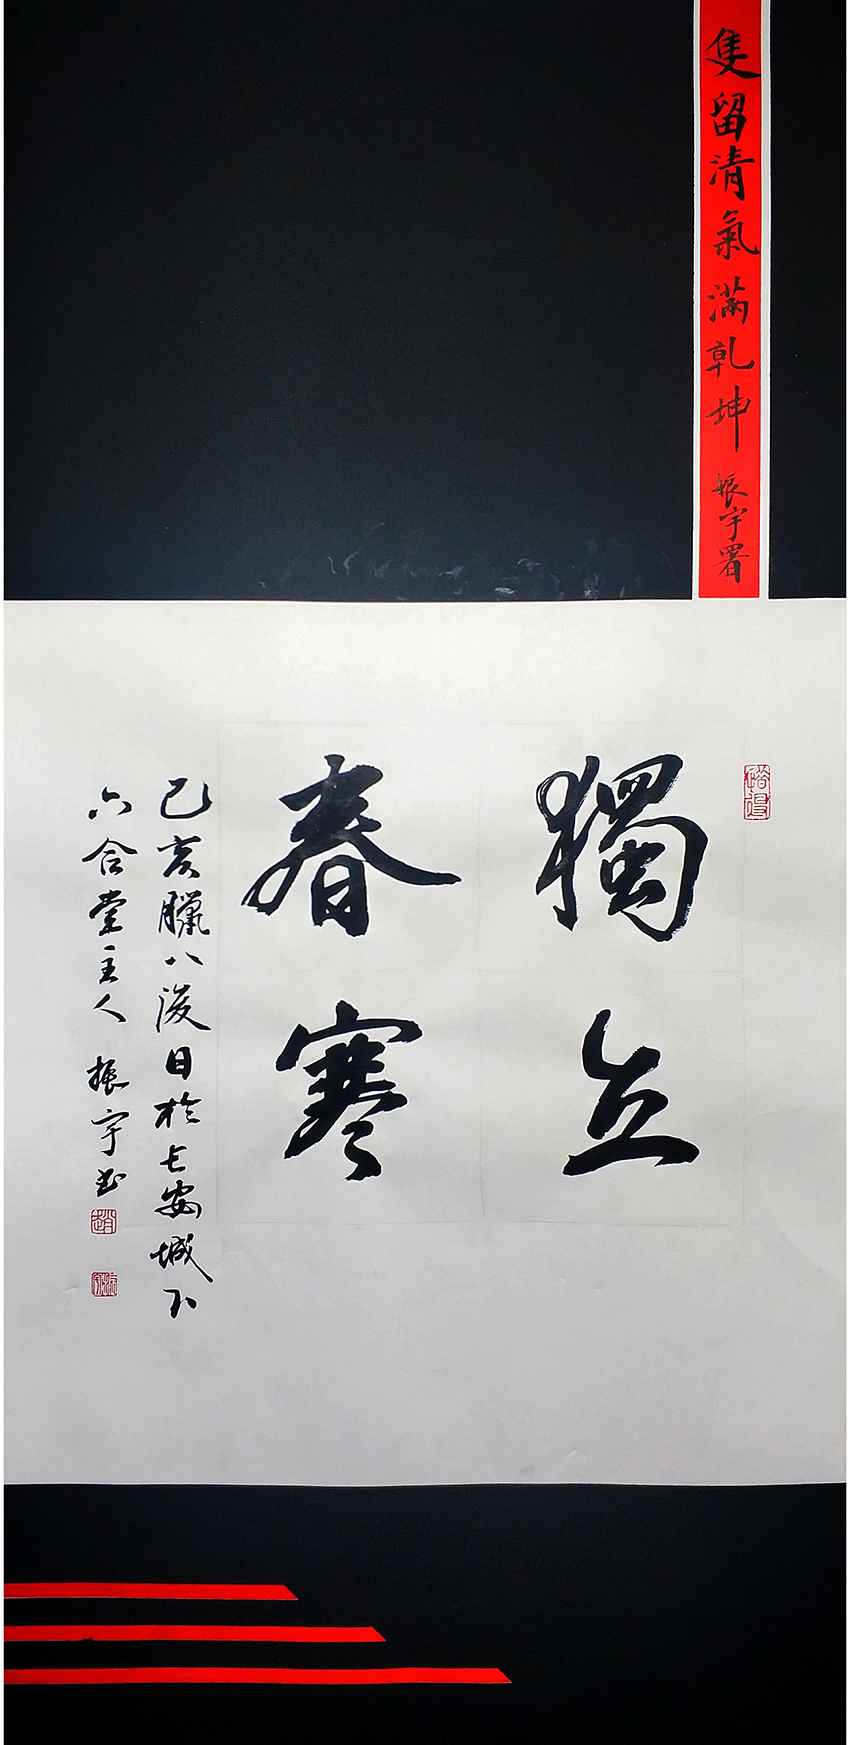 隻留清氣滿乾坤 振宇署
獨立
春寒
己亥臘八後日於長安城下
六合堂主人 振宇書
趙